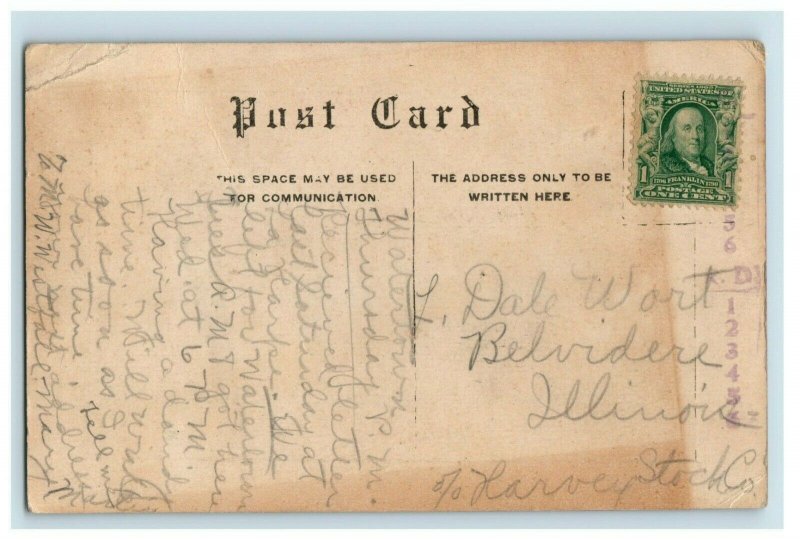 Post Card
THIS SPACE MAY BE USED
FOR COMMUNICATION
THE ADDRESS ONLY TO BE
WRITTEN HERE
SERIES 1902
UNITED STATES OF
AMERICA
1 1706 FRANKLIN 1790 1
POSTAGE
ONE CENT
Watertown
Thursday P.M.
Received letter
last Saturday at
La Harpe.
left for Watertown
A.M. & got here
Wed. at 6 P.M.
Having a
time. Will write
as soon as I
have time
Mary
L. Dale Wort
Belvidere
Illinois
c/o Harvey Stock Co.
5
6
D
1
2
3
4
5